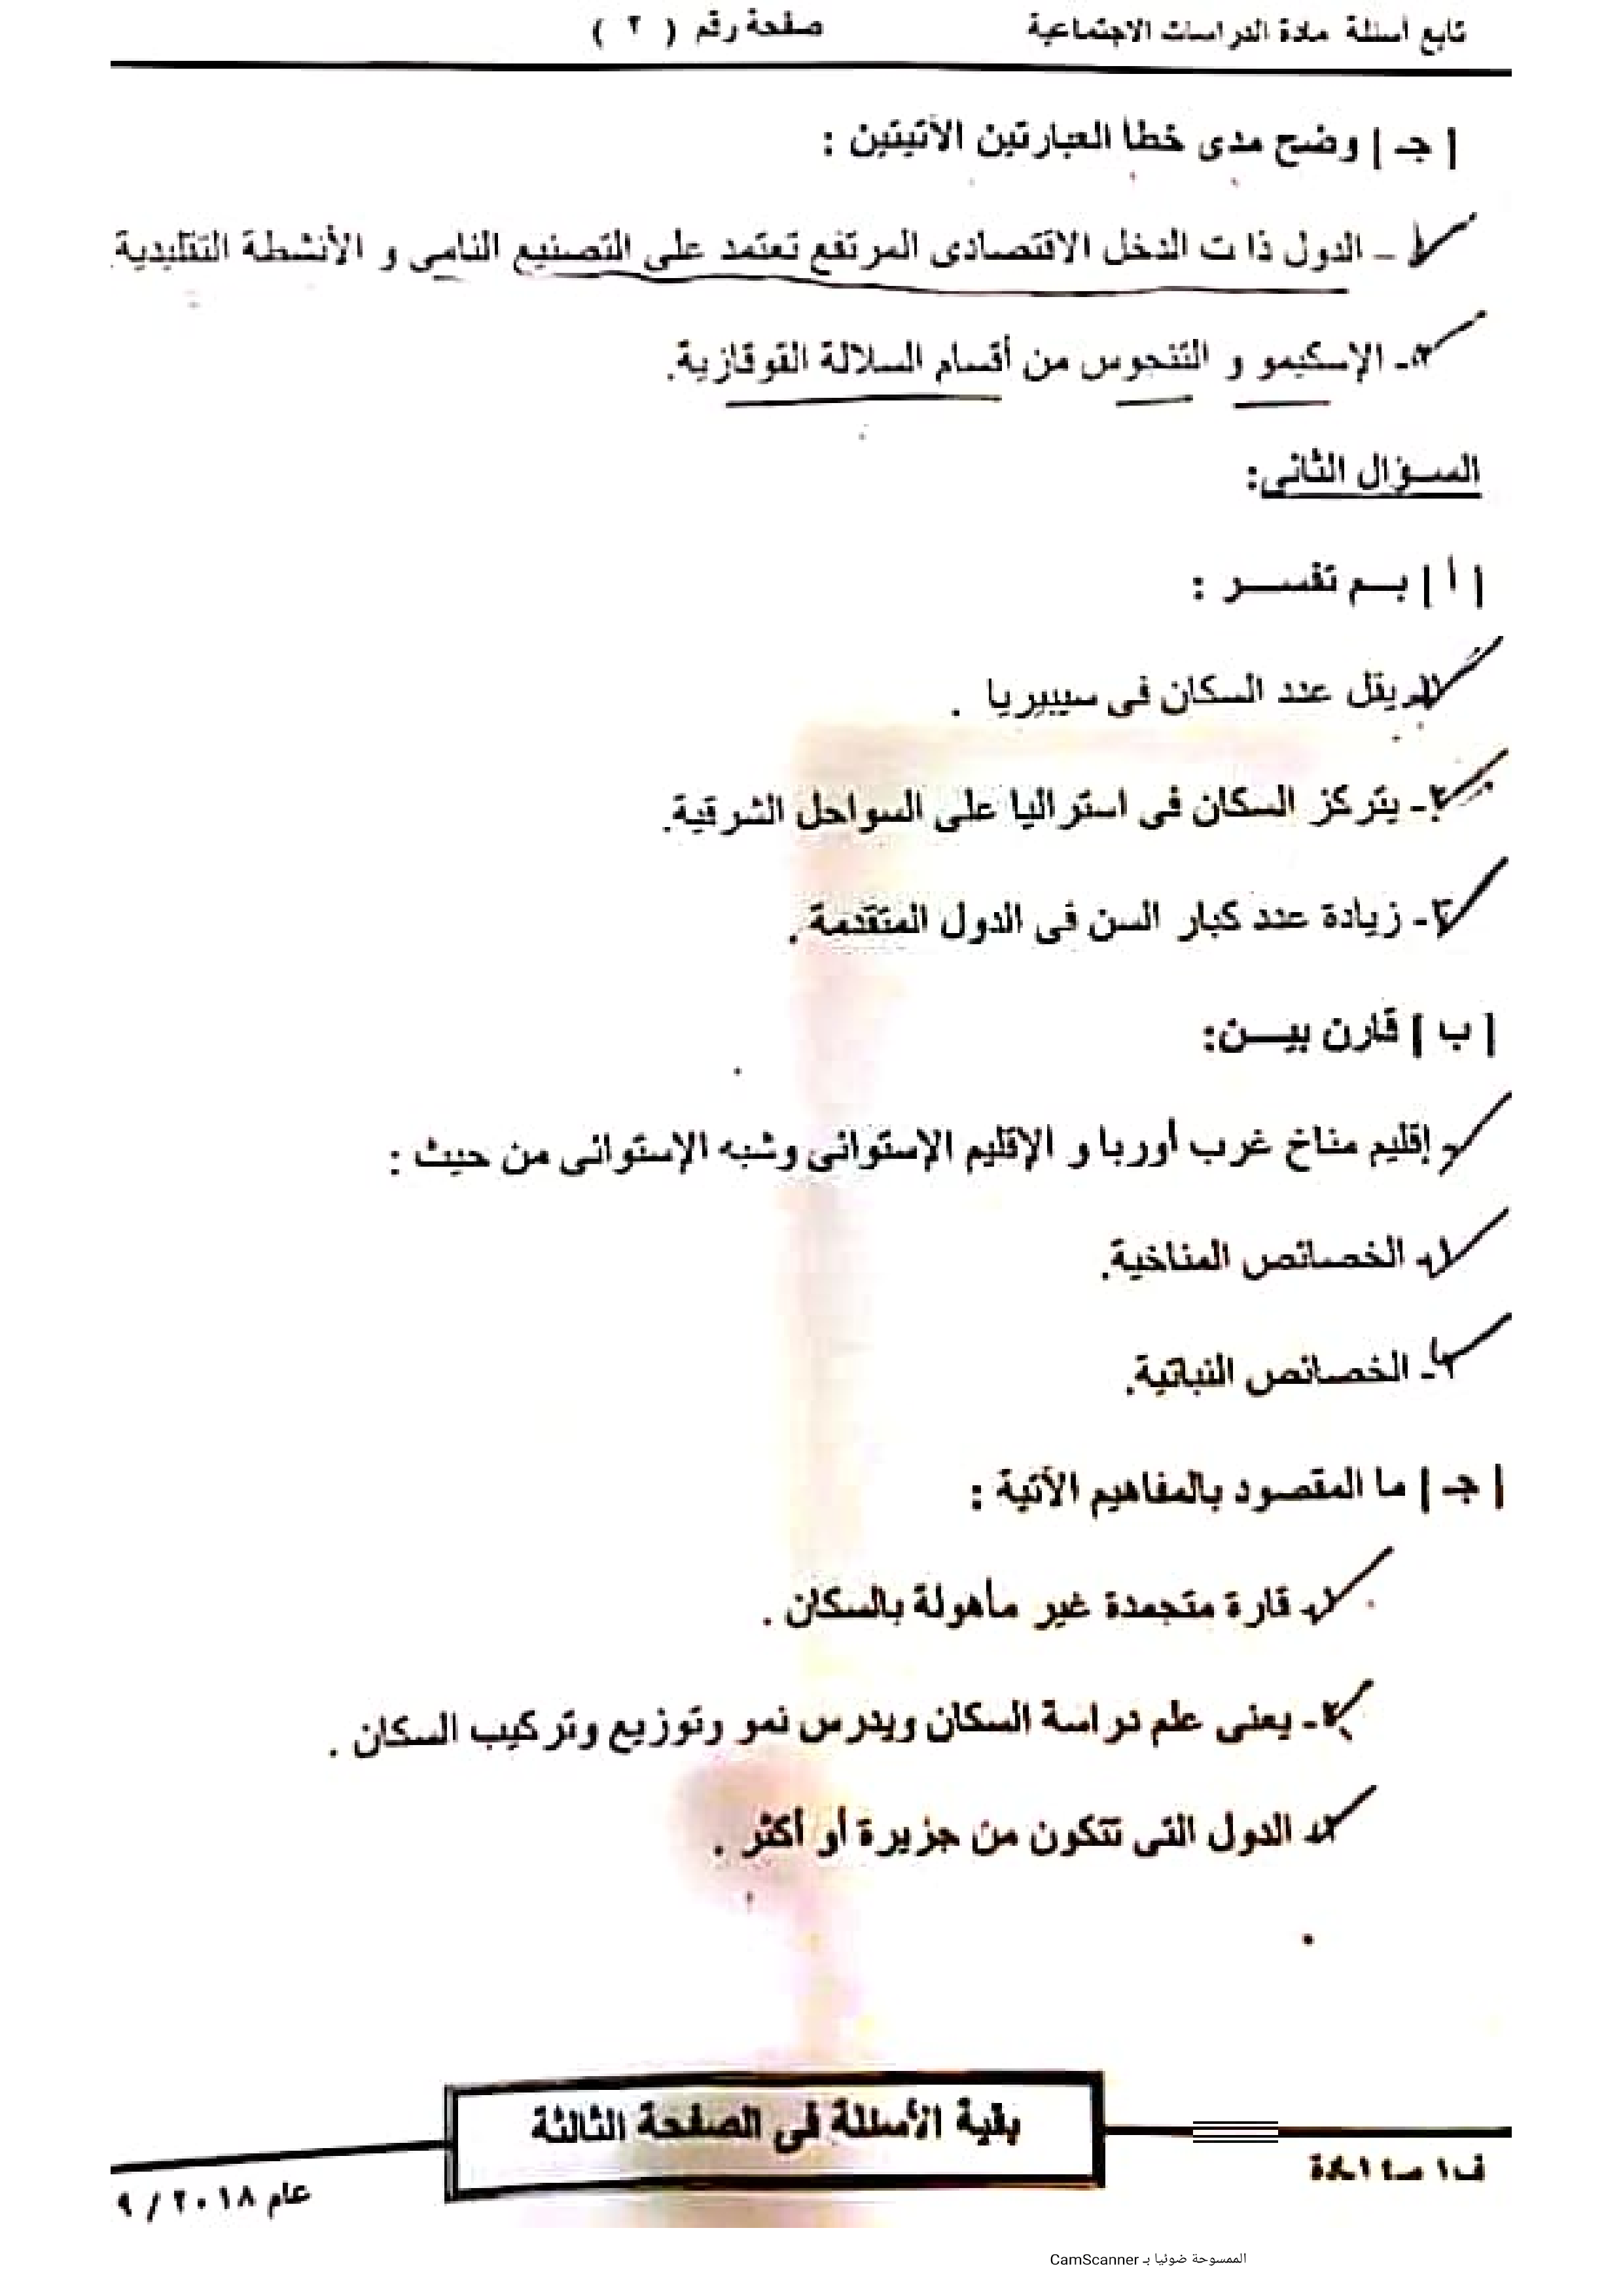 تابع أسئلة مادة الدراسات الاجتماعية صفحة رقم ( ٢ )
[ جـ ] وضح مدى خطأ العبارتين الآتيتين :
١ - الدول ذا ت الدخل الاقتصادى المرتفع تعتمد على التصنيع النامى و الأنشطة التقليدية
٢- الإسكيمو و التنجوس من أقسام السلالة القوقازية.
السـؤال الثانى:
[ أ ] بـــم تفســـر :
١- يقل عدد السكان فى سيبيريا .
٢- يتركز السكان فى استراليا على السواحل الشرقية.
٣- زيادة عدد كبار السن فى الدول المتقدمة .
[ ب ] قارن بيـــن:
- إقليم مناخ غرب أوربا و الإقليم الإستوائى وشبه الإستوائى من حيث :
١- الخصائص المناخية.
٢- الخصائص النباتية.
[ جـ ] ما المقصود بالمفاهيم الآتية :
١- قارة متجمدة غير مأهولة بالسكان .
٢- يعنى علم دراسة السكان ويدرس نمو وتوزيع وتركيب السكان .
٣- الدول التى تتكون من جزيرة أو أكثر .
بقية الأسئلة فى الصفحة الثالثة
عام ٢٠١٨ / ٩
الممسوحة ضوئيا بـ CamScanner